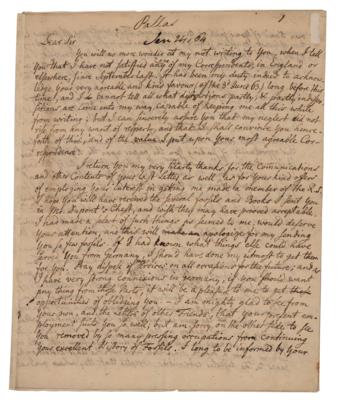 Pallas 1
Dear Sir Jan 24. 64
You will as more wonder at my not writing to You, when I tell
you that I have not satisfied any of my Correspondents, in England or
elsewhere, since September last. It has been my duty indeed to acknow
ledge Your very agreable and kind favour, of the 3d June 63) long before this
time, and I do cannot but all what
sitions as come into my way, capable of keeping me all this while
from writing; but I can sincerely assure You that my neglect did not
rise from any want of respect, and that I shall convince You hence-
forth of this, and of the value I put upon Your most agreable Cor-
respondence.
I return You my very hearty thanks for the Communications
and other Contents of Your last Letter as well as for Your kind offers
of employing Your interest in getting me made a member of the R.S.
I hope You will have received the several papers and Books I sent You
in Mr. Dupont's Chest, and wish they may have proved acceptable.
I had made a parcel of such things as seemed to me, would deserve
Your attention, and this will make an apologize for my sending
You so few fossils. If I had known what things else could have
served You from Germany, I should have done my utmost to get them
for You. Pray dispose of Services on all occasions for the future, and as
I have very strong Connexions in Germany, if You should want
any thing from these Parts, it will be a pleasure to me to get these
opportunities of obliging You. — I am mighty glad to see from
Your own, and the Letters of other Friends, that Your present em-
ployment suits You so well, but am sorry on the other side to see
You removed by so many pressing occupations from continuing
Your excellent History of Fossils. I long to be informed by Your